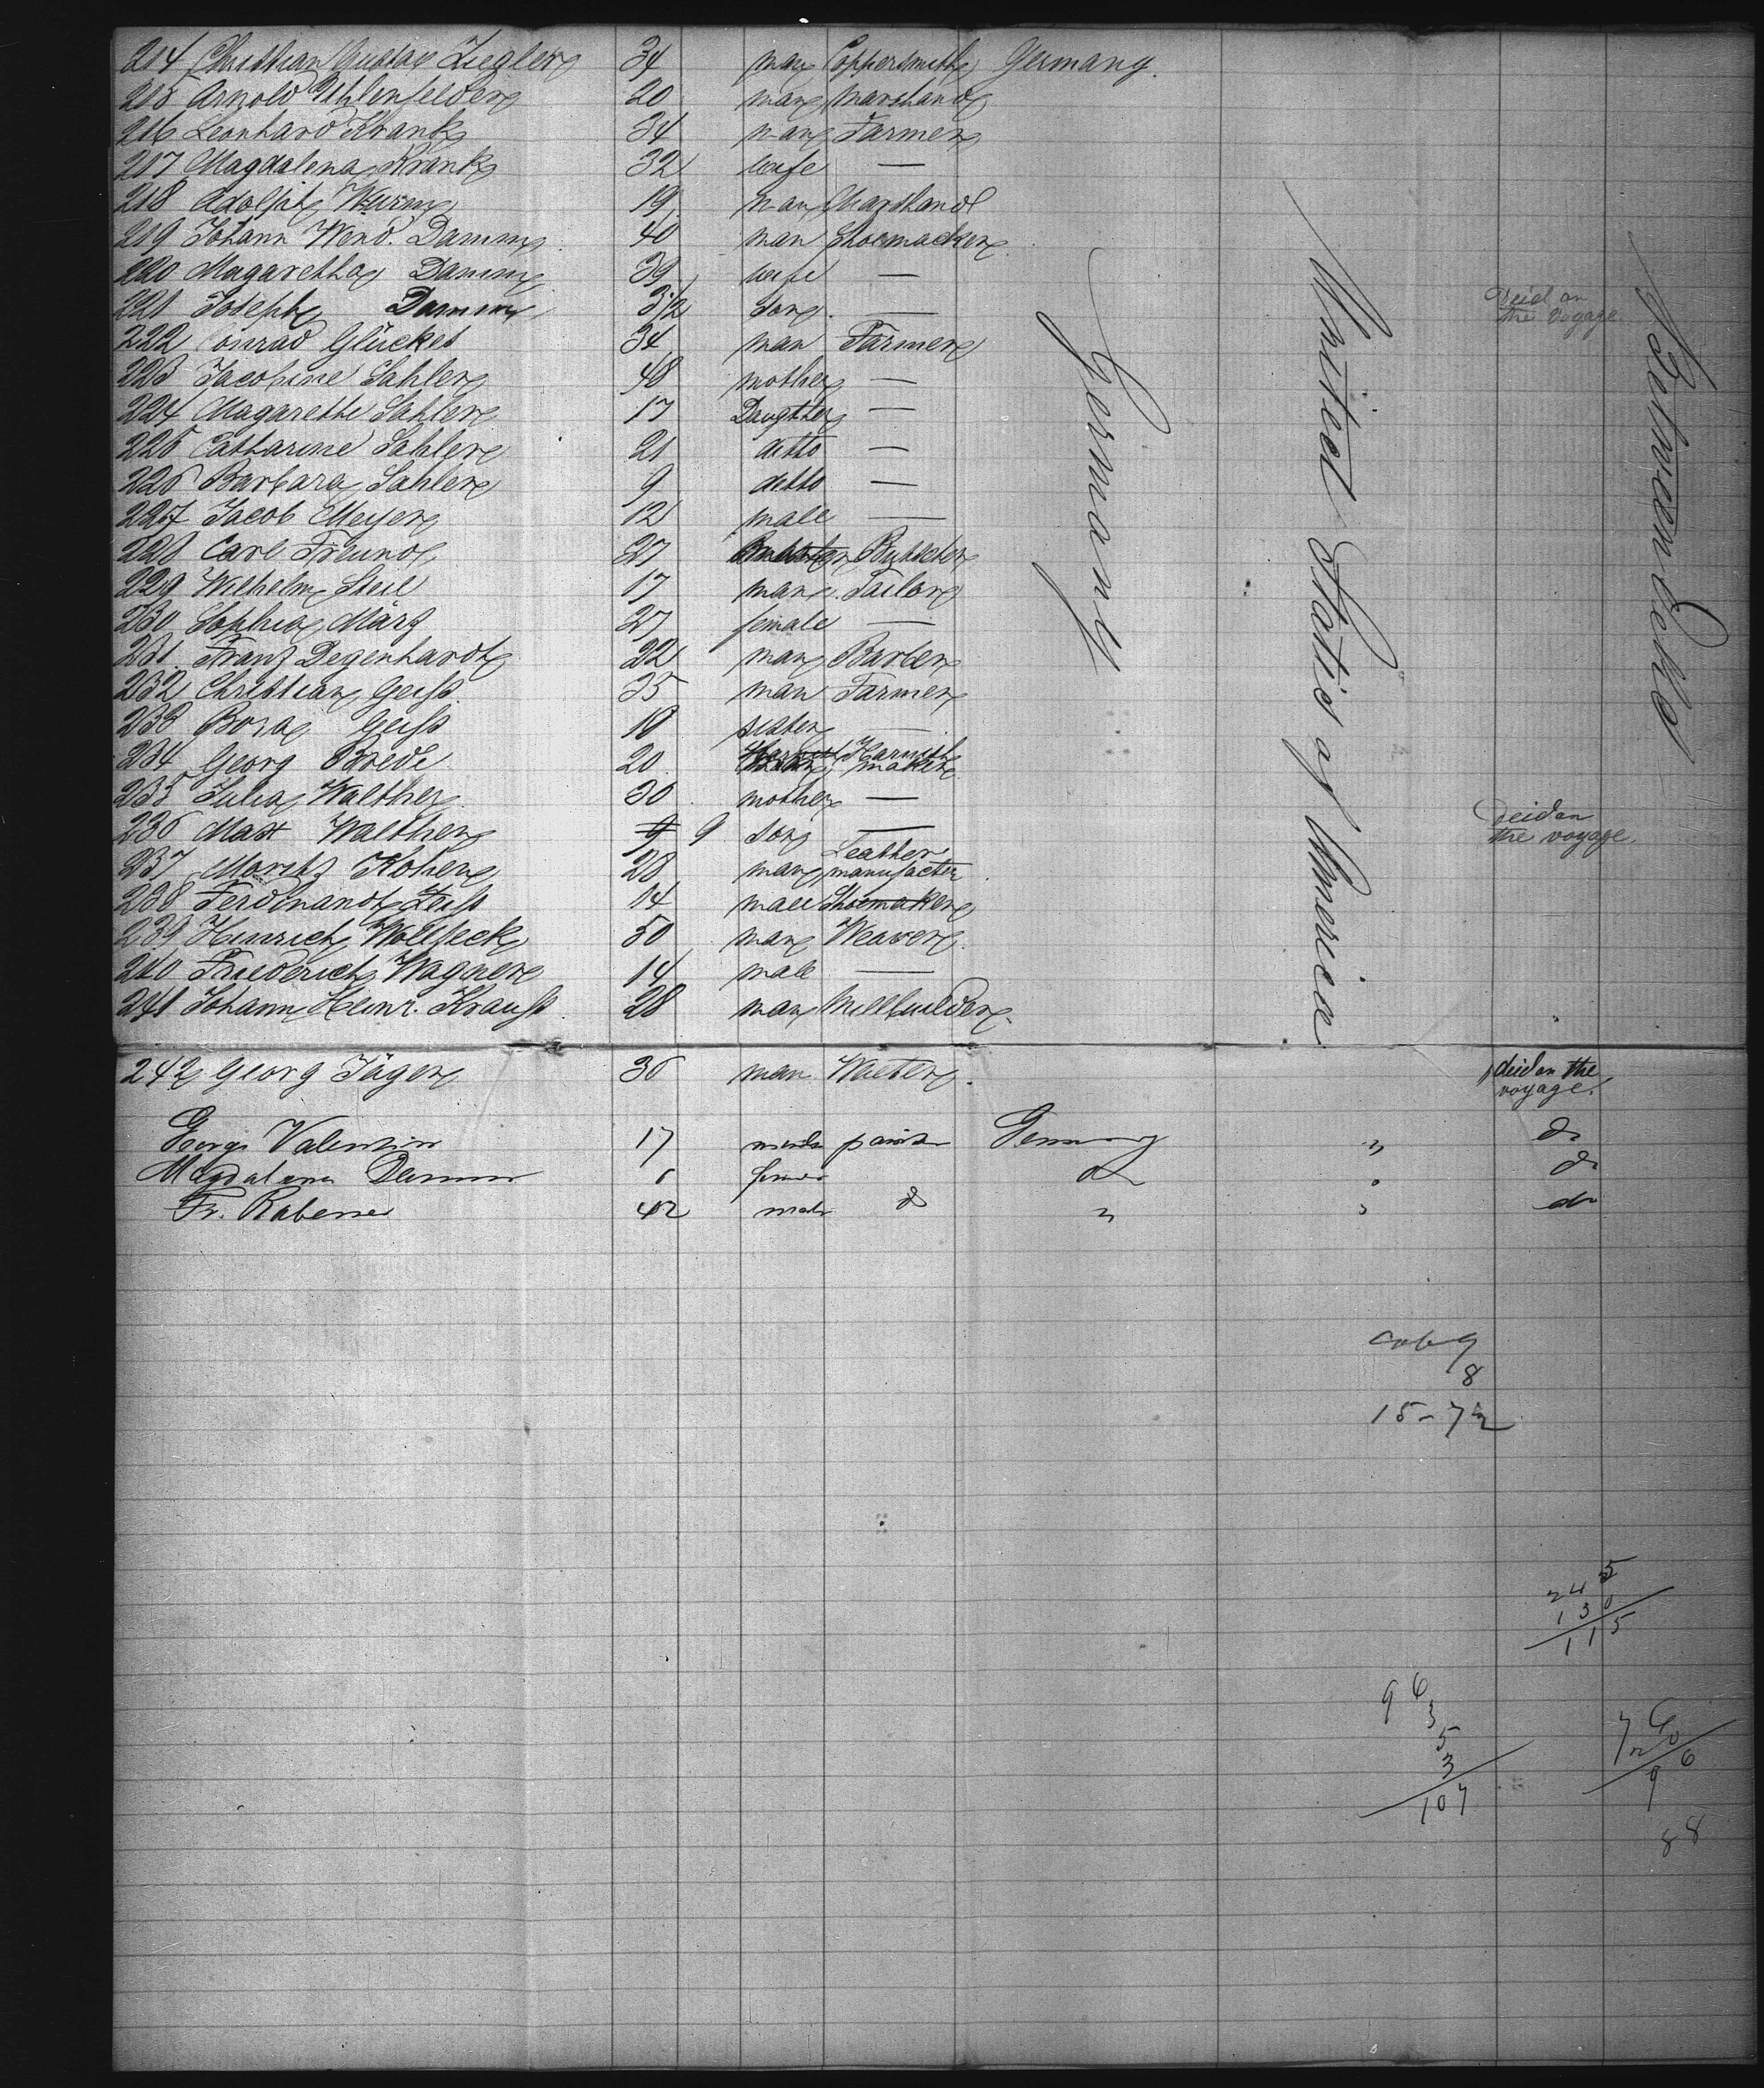 214 Christian Gustav Ziegler 34 man Coppersmith Germany.
215 Arnold Uhlenfelder 20 man Marshand
216 Leonhard Krank 34 man Farmer
217 Magdalena Krank 32 wife —
218 Adolph Wurm 19 man Marshand
219 Johann Wend. Damm 40 man Shoemacker
220 Magaretha Damm 39 wife —
221 Joseph Damm 3/12 Son — Deid on the Voyage
222 Conrad Glücket 34 man Farmer
223 Jacobine Sahler 48 mother —
224 Magarethe Sahler 17 Daugther —
225 Catharine Sahler 21 ditto —
226 Barbara Sahler 9 ditto —
227 Jacob Meyer 12 male —
228 Carl Freund 27 Butscher
229 Wilhelm Steil 17 man Tailor
230 Sophia März 27 female —
231 Franz Degenhardt 22 man Barber
232 Christian Geiß 25 man Farmer
233 Dora Geiß 18 sister —
234 Georg Brede 20 Harnish maker
235 Julia Walther 30 mother —
236 Max Walther 9 9 Son — deid on the voyage
237 Moritz Koher 28 man Leather manufacter
238 Ferdinand Zeiß 14 male Shoemaker
239 Heinrich Wollseck 50 man Weaver
240 Friederich Wagner 14 male —
241 Johann Heinr. Krauß 28 man Millbuilder
Germany
United States of America
Between Deck
242 Georg Jäger 36 man Waiter deid on the voyage.
George Valentin 17 male Germany " do
Magdalena Damm 6 do do
Fr. Rabene 42 male do " " do
9
8
15-72
245
130
115
96
3
5
3
107
96
88